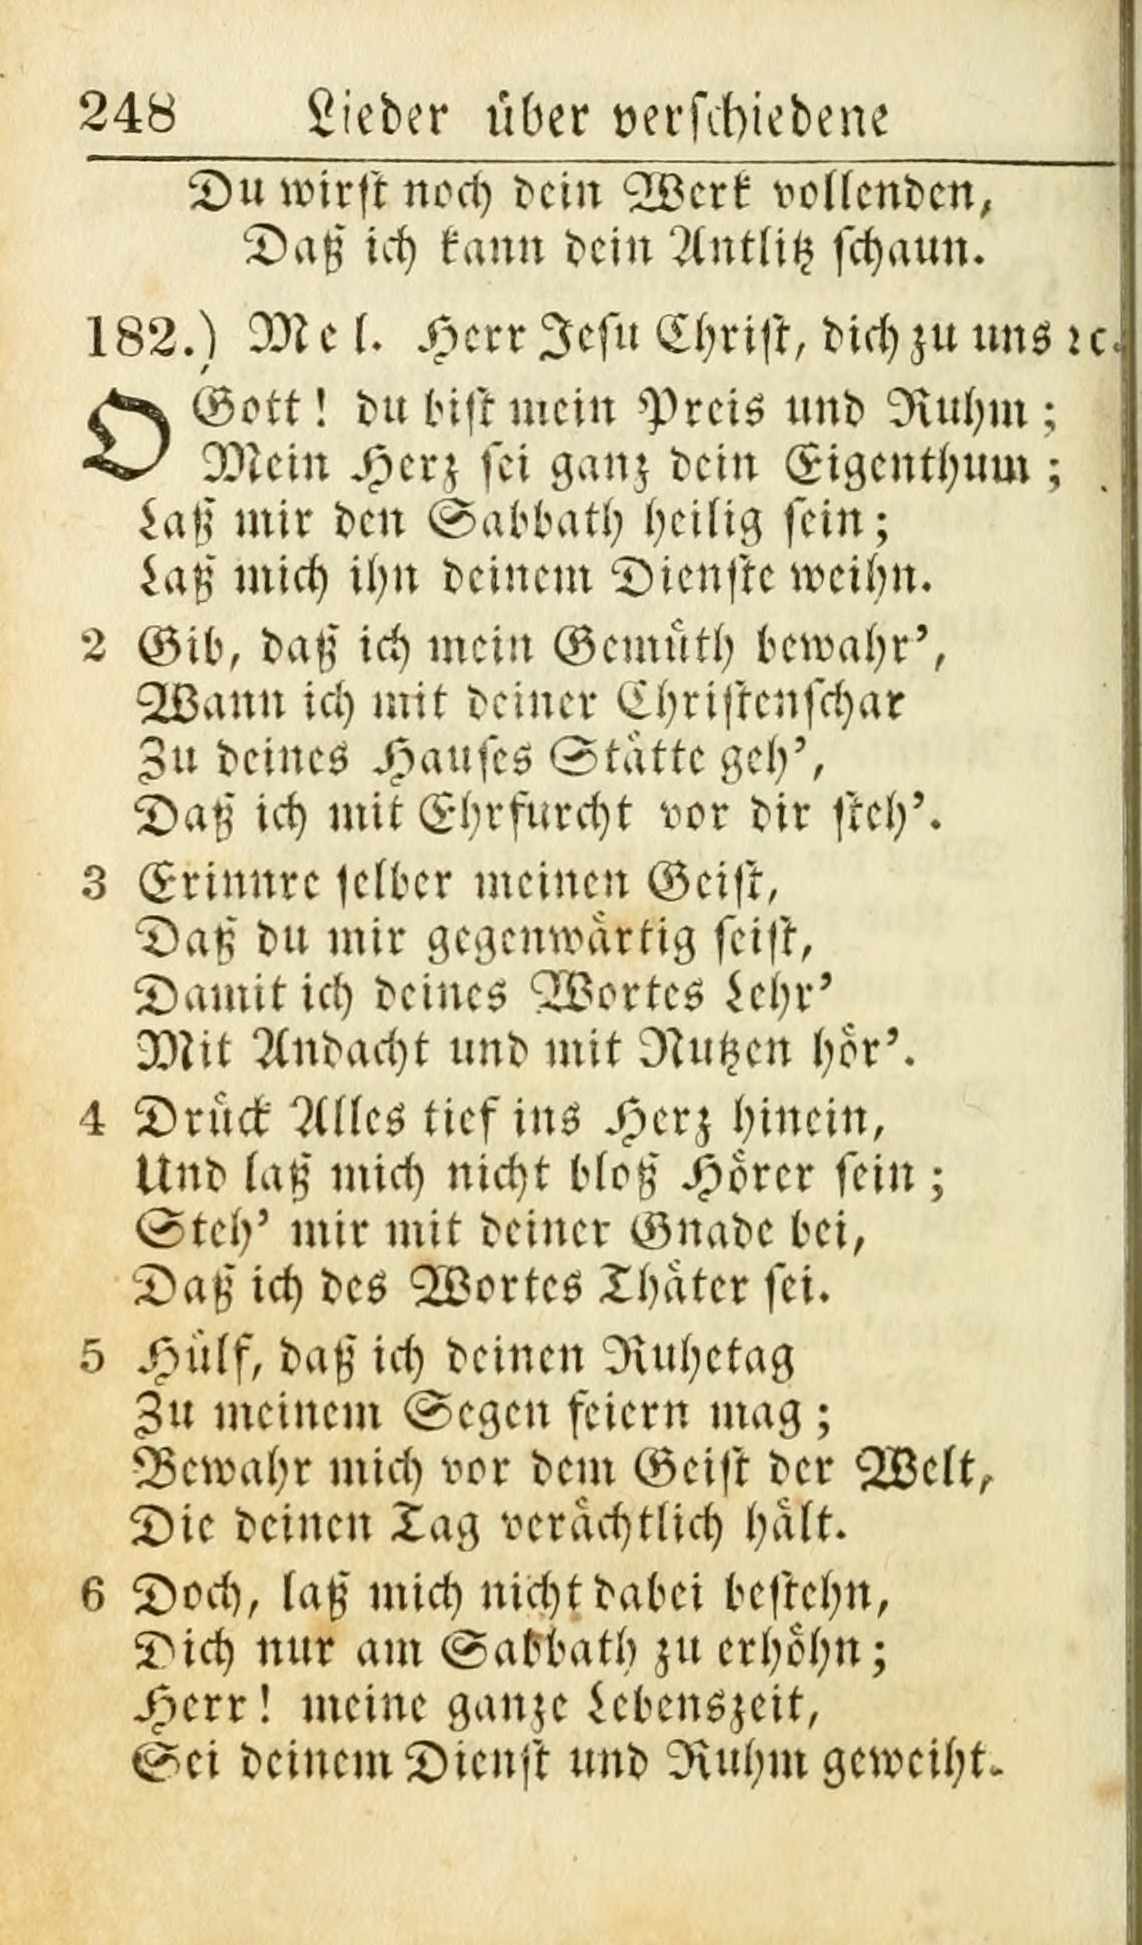 248 Lieder über verschiedene
Du wirst noch dein Werk vollenden,
Daß ich kann dein Antlitz schaun.
182.) Mel. Herr Jesu Christ, dich zu uns ꝛc.
O Gott! du bist mein Preis und Ruhm;
Mein Herz sei ganz dein Eigenthum;
Laß mir den Sabbath heilig sein;
Laß mich ihn deinem Dienste weihn.
2 Gib, daß ich mein Gemüth bewahr’,
Wann ich mit deiner Christenschar
Zu deines Hauses Stätte geh’,
Daß ich mit Ehrfurcht vor dir steh’.
3 Erinnre selber meinen Geist,
Daß du mir gegenwärtig seist,
Damit ich deines Wortes Lehr’
Mit Andacht und mit Nutzen hör’.
4 Drück Alles tief ins Herz hinein,
Und laß mich nicht bloß Hörer sein;
Steh’ mir mit deiner Gnade bei,
Daß ich des Wortes Thäter sei.
5 Hülf, daß ich deinen Ruhetag
Zu meinem Segen feiern mag;
Bewahr mich vor dem Geist der Welt,
Die deinen Tag verächtlich hält.
6 Doch, laß mich nicht dabei bestehn,
Dich nur am Sabbath zu erhöhn;
Herr! meine ganze Lebenszeit,
Sei deinem Dienst und Ruhm geweiht.